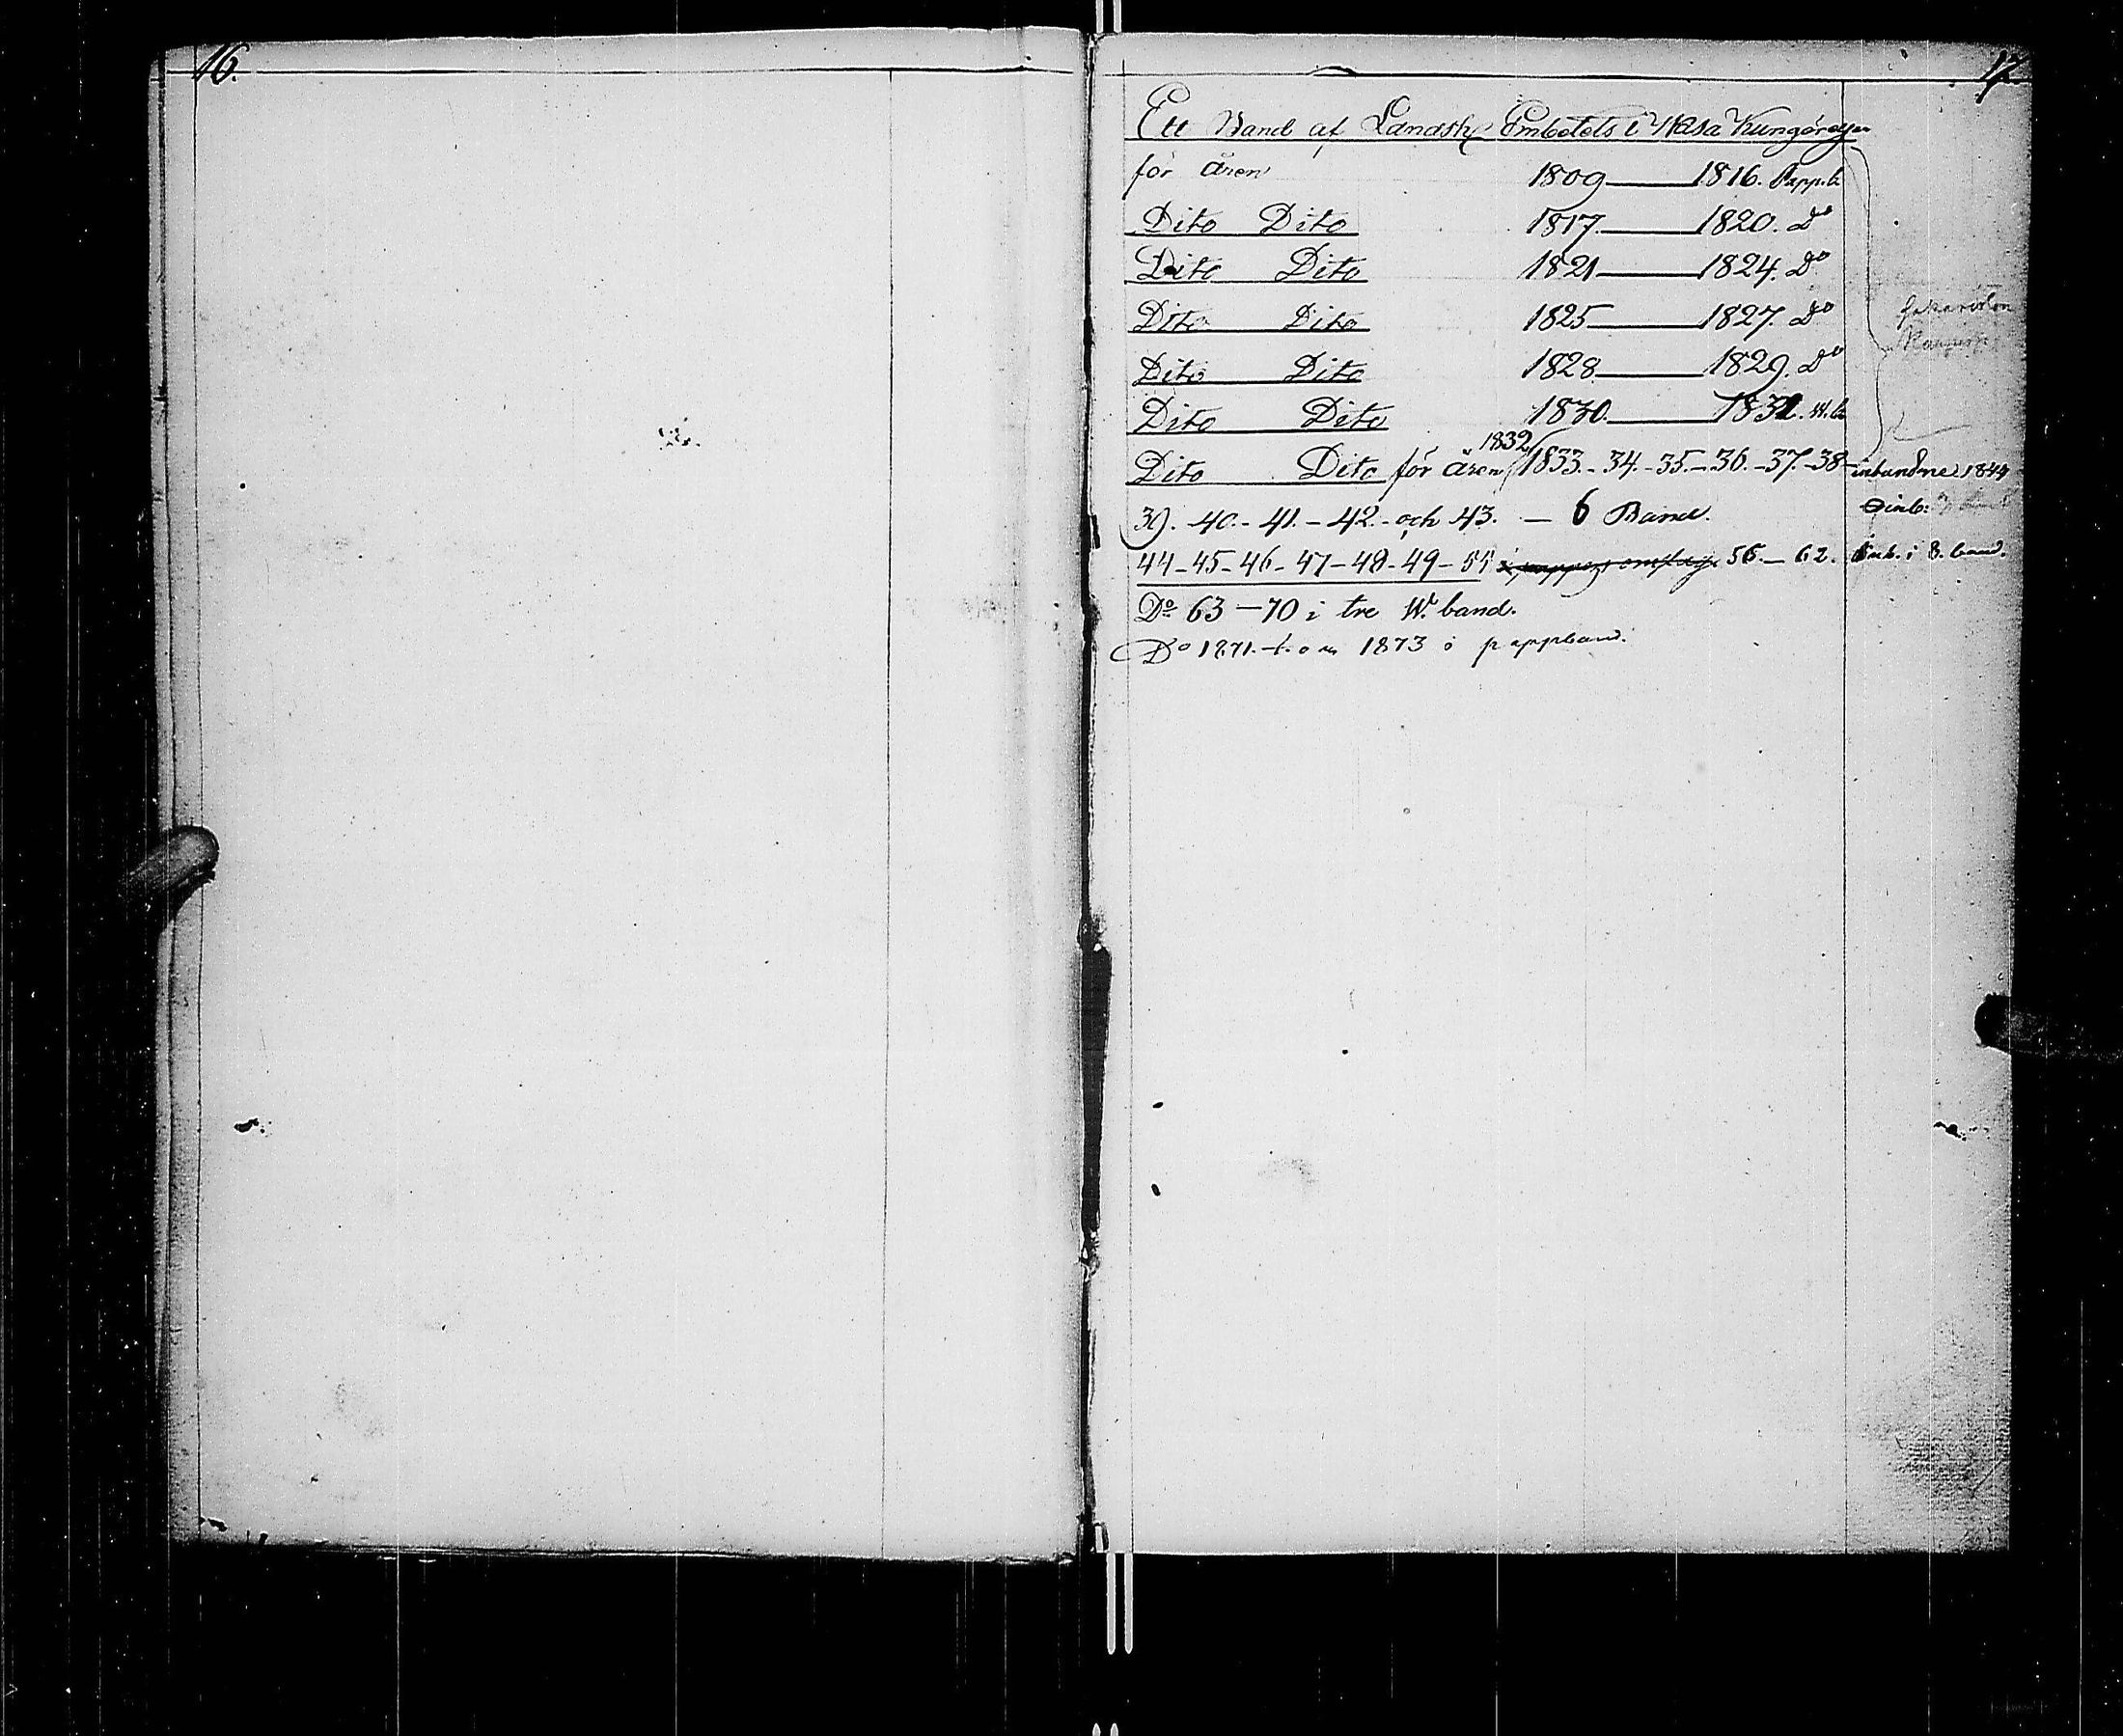 16.
17.
Ett Band af Landsh Embetets i Wasa Kungörelser
för åren 1809 — 1816. Papp.b
Dito Dito 1817. — 1820. Do
Dito Dito 1821 — 1824. Do
Dito Dito 1825 — 1827. Do
Dito Dito 1828. — 1829. Do
Dito Dito 1830. — 1831. W.b
1832
Dito Dito för åren 1833.- 34.- 35.- 36.- 37.- 38- inbundne 1844
39. -40.- 41.- 42.- och 43. — 6 Band. Oinb:
44-45-46-47-48-49-55 i omslag 56.- 62. Inb. i 8. band.
Do 63-70 i tre W. band.
Do 1871. t. o m 1873 i pappband.